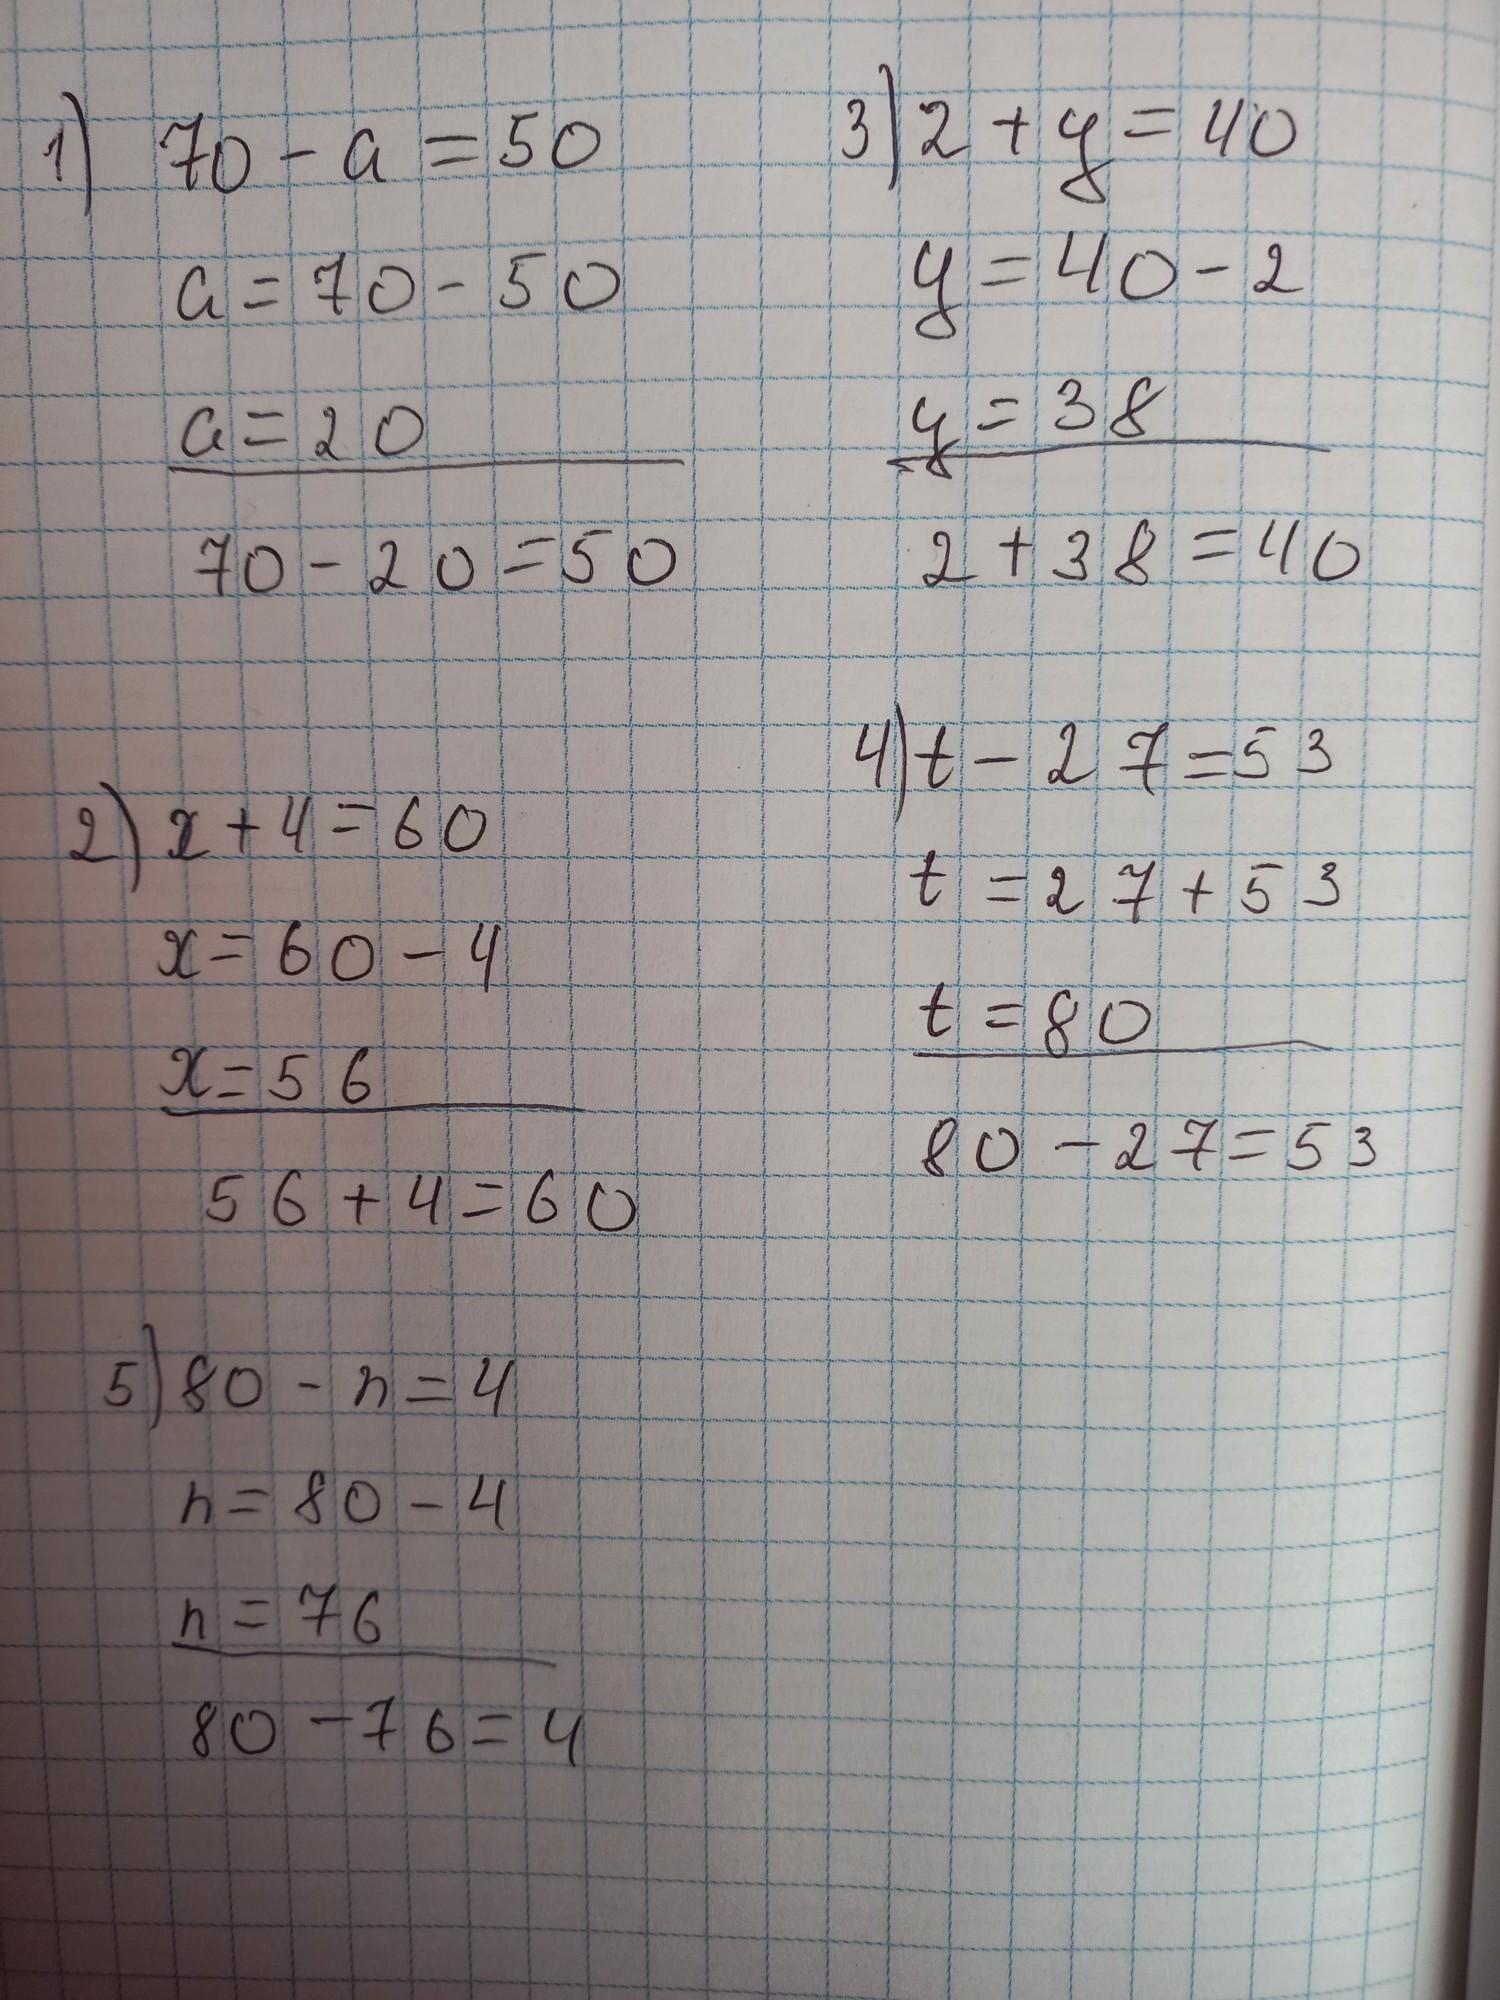 1) 70 - a = 50
a = 70 - 50
a = 20
70 - 20 = 50
2) x + 4 = 60
x = 60 - 4
x = 56
56 + 4 = 60
5) 80 - n = 4
n = 80 - 4
n = 76
80 - 76 = 4
3) 2 + y = 40
y = 40 - 2
y = 38
2 + 38 = 40
4) t - 27 = 53
t = 27 + 53
t = 80
80 - 27 = 53